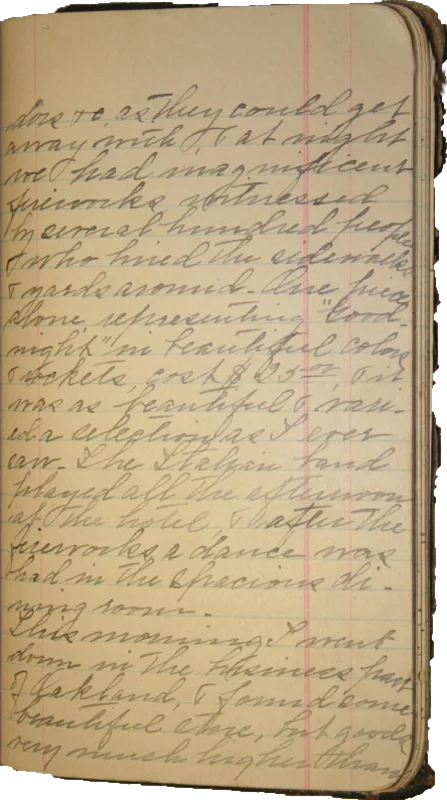 dors &c, as they could get
away with, & at night
we had magnificent
fireworks witnessed
by several hundred people
who lined the sidewalks
& yards around. One piece
alone, representing "Good-
night" in beautiful colors
& rockets, cost $25.00, & it
was as beautiful & vari-
ed a selection as I ever
saw. The Italian band
played all the afternoon
at the hotel, & after the
fireworks a dance was
had in the spacious di-
ning room.
This morning I went
down in the business part
of Oakland, & found some
beautiful store, but goods
very much higher than